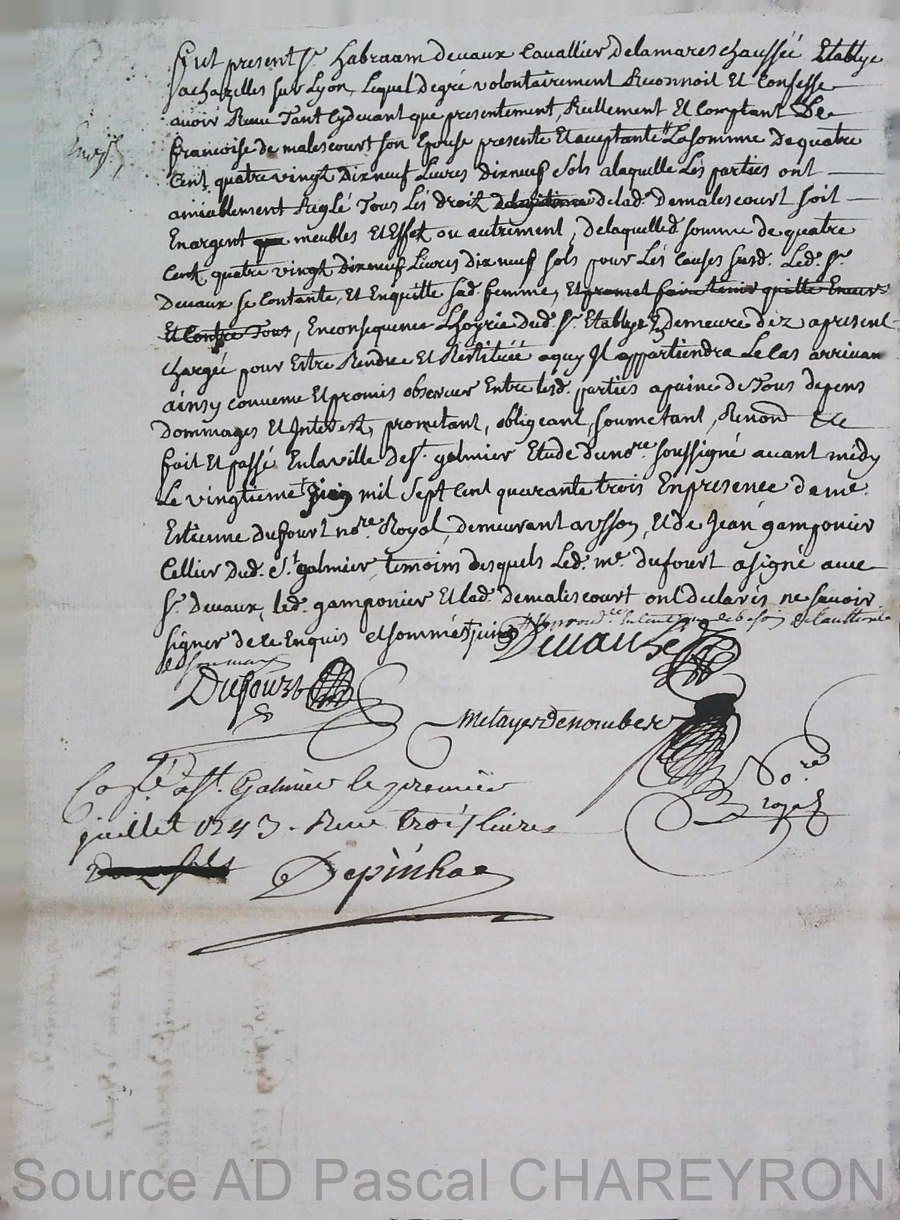 fut present Sr. habraam devaux Cavallier delamareschaussée Etablye
achazelles sur Lyon, Lequel degré volontairement Reconnoit Et Confesse
avoir Receu Tant Cydevant que presentement, Reellement Et Comptant De
francoise de malescourt son Epouse presente Et acceptante Lasomme De quatre
Cent quatre vingt Dixneuf Livres dixneuf Sols alaquelle Les parties ont
amiablement Reglé Tous Les droit delad. demalescourt soit
Enargent meubles Et Effet ou autrement, delaquelled. somme de quatre
Cent quatre vingt dixneuf Livres dix neuf sols pour Les Causes susd. Led. Sr.
Devaux se Contante, Et Enquitte sad. femme, Et promet faire tenir quitte Envers
Et Contre Tous, Enconsequence Lhoyrie dud. Sr. Etablye Et demeure dez apresent
Chargée pour Estre Rendue Et Restituée aquy Jl appartiendra Le Cas arrivan
ainsy convenu Et promis observer Entre lesd. parties apaine de Tous depens
dommages Et Interest, prometant, obligeant, soumetant, Renond &c
fait Et passé Enlaville de St. galmier Etude dunore. soussigné avant midy
Le vingtieme Juin mil Sept Cent quarante trois Enpresence de me.
Estienne dufourt nore. Royal, demeurant a, Et de Jean gamponier
Cellier dud. St. galmier, temoins desquels Led. me. dufourt a signé avec
Sr. Devaux, led. gamponier Et lad. demalescourt ont declarés ne savoir
signer de ce Enquis et sommés juin
Devaux
Dufourt
metayer denombert
No.re
Royal
Con.lé a St. Galmier le premier
juillet 1743. Receu trois livres
Depinhac
Source AD Pascal CHAREYRON